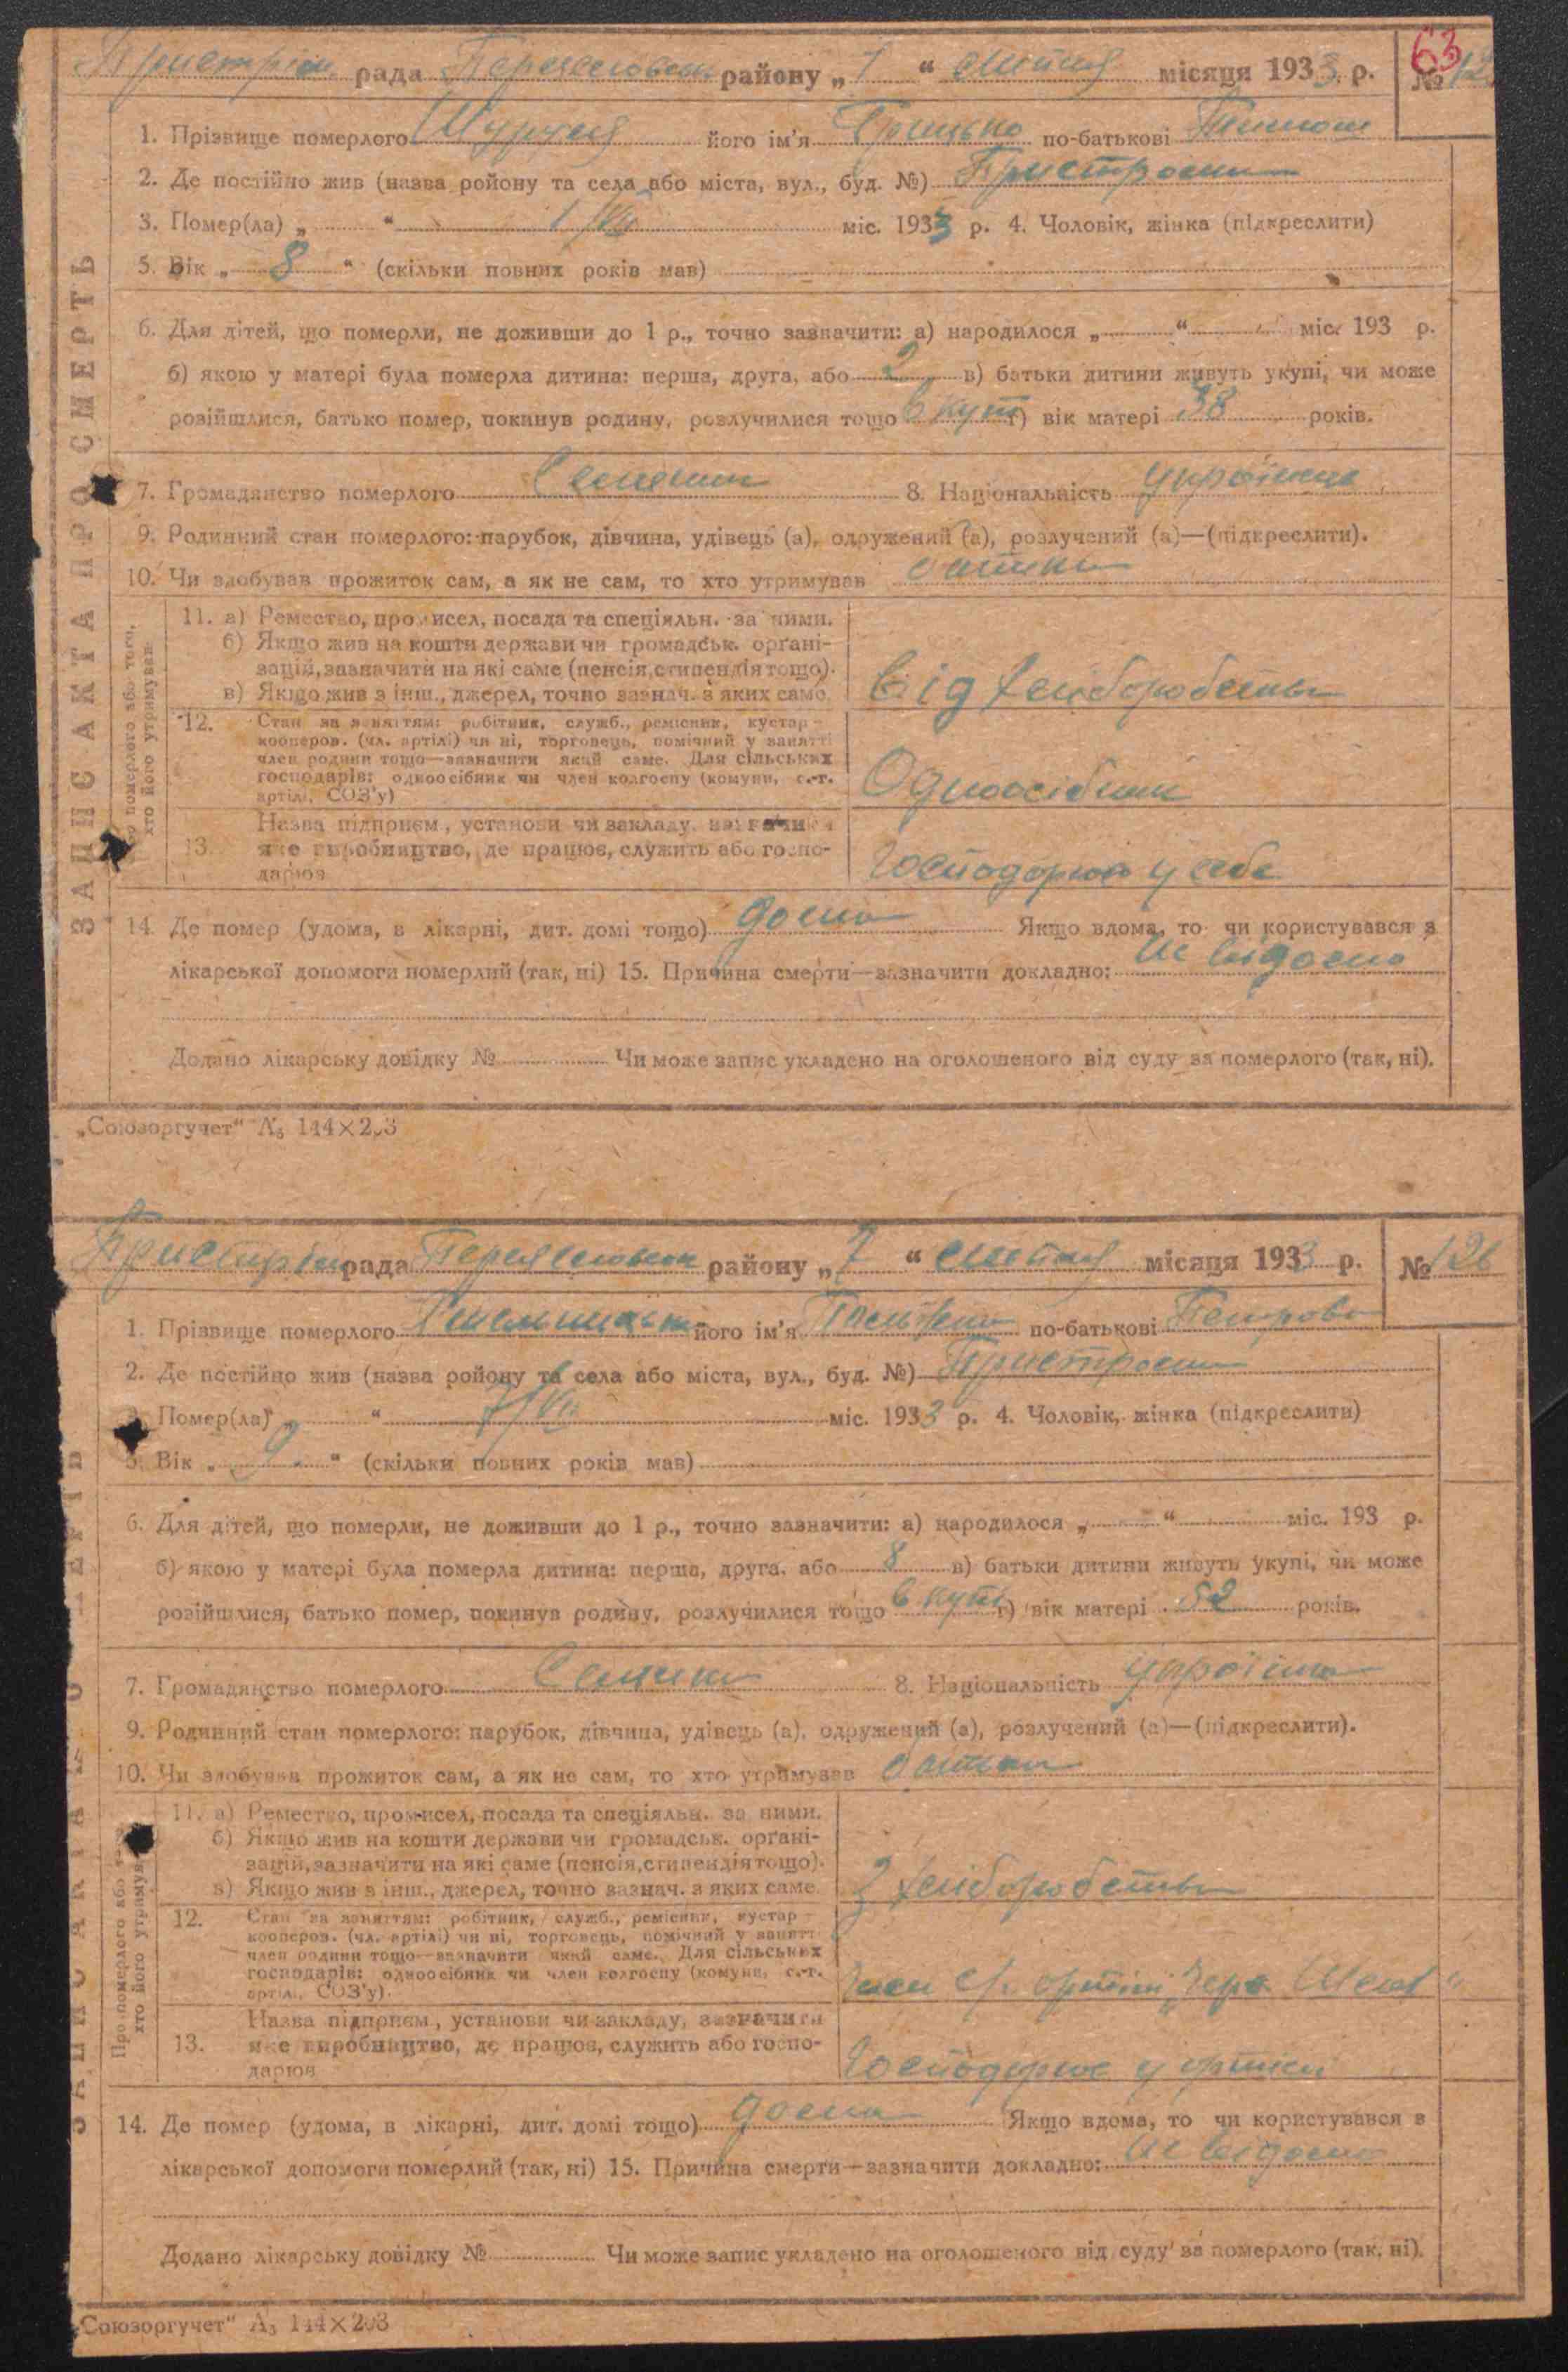 63
Пристрім. рада Переяславськ району „ 7 “ липня місяця 1933 р. №
1. Прізвище померлого його ім'я Грицько по-батькові
2. Де постійно жив (назва ройону та села або міста, вул., буд. №) Пристроми
3. Помер(ла) „ “ 1/VII міс. 1933 р. 4. Чоловік, жінка (підкреслити)
5. Вік „ 8 “ (скільки повних років мав)
6. Для дітей, що померли, не доживши до 1 р., точно зазначити: а) народилося „ “ міс. 193 р.
б) якою у матері була померла дитина: перша, друга, або 2 в) батьки дитини живуть укупі, чи може
розійшлися, батько помер, покинув родину, розлучилися тощо вкупі г) вік матері 38 років.
7. Громадянство померлого 8. Національність українец
9. Родинний стан померлого: парубок, дівчина, удівець (а), одружений (а), розлучений (а)—(підкреслити).
10. Чи здобував прожиток сам, а як не сам, то хто утримував батьки
ЗАПИС АКТА ПРО СМЕРТЬ
Про померлого або того, хто його утримував
11. а) Ремество, промисел, посада та спеціяльн. за ними.
б) Якщо жив на кошти держави чи громадськ. органі-
зацій, зазначити на які саме (пенсія, стипендія тощо).
в) Якщо жив з інш., джерел, точно зазнач. з яких саме. від хліборобства
12. Стан за заняттям: робітник, служб., ремісник, кустар -
кооперов. (чл. артілі) чи ні, торговець, помічний у занятті
член родини тощо—зазначити який саме. Для сільських
господарів: одноосібник чи член колгоспу (комуни, с.-г.
артілі, СОЗ'у) Одноосібник
Назва підприєм., установи чи закладу, зазначити
13. яке виробництво, де працює, служить або госпо-
дарює Господарює у себе
14. Де помер (удома, в лікарні, дит. домі тощо) дома Якщо вдома, то чи користувався з
лікарської допомоги померлий (так, ні) 15. Причина смерти—зазначити докладно: Не відомо
Додано лікарську довідку № Чи може запис укладено на оголошеного від суду за померлого (так, ні).
„Союзоргучет“ А5 144×203
Пристрім рада Переяславськ району „ 7 “ липня місяця 1933 р. № 126
1. Прізвище померлого його ім'я по-батькові Петрова
2. Де постійно жив (назва ройону та села або міста, вул., буд. №) Пристроми
3. Помер(ла) „ “ 7/VII міс. 1933 р. 4. Чоловік, жінка (підкреслити)
5. Вік „ 9. “ (скільки повних років мав)
6. Для дітей, що померли, не доживши до 1 р., точно зазначити: а) народилося „ “ міс. 193 р.
б) якою у матері була померла дитина: перша, друга, або 8 в) батьки дитини живуть укупі, чи може
розійшлися, батько помер, покинув родину, розлучилися тощо вкупі г) вік матері 52 років.
7. Громадянство померлого 8. Національність українка
9. Родинний стан померлого: парубок, дівчина, удівець (а), одружений (а), розлучений (а)—(підкреслити).
10. Чи здобував прожиток сам, а як не сам, то хто утримував батьки
ЗАПИС АКТА ПРО СМЕРТЬ
Про померлого або того, хто його утримував
11. а) Ремество, промисел, посада та спеціяльн. за ними.
б) Якщо жив на кошти держави чи громадськ. органі-
зацій, зазначити на які саме (пенсія, стипендія тощо).
в) Якщо жив з інш., джерел, точно зазнач. з яких саме. З хліборобства
12. Стан за заняттям: робітник, служб., ремісник, кустар -
кооперов. (чл. артілі) чи ні, торговець, помічний у занятті
член родини тощо—зазначити який саме. Для сільських
господарів: одноосібник чи член колгоспу (комуни, с.-г.
артілі, СОЗ'у). Член с/г артілі „Черв.
Назва підприєм., установи чи закладу, зазначити
13. яке виробництво, де працює, служить або госпо-
дарює Господарює у артілі
14. Де помер (удома, в лікарні, дит. домі тощо) дома Якщо вдома, то чи користувався з
лікарської допомоги померлий (так, ні) 15. Причина смерти—зазначити докладно: Не відомо
Додано лікарську довідку № Чи може запис укладено на оголошеного від суду за померлого (так, ні).
„Союзоргучет“ А5 144×203